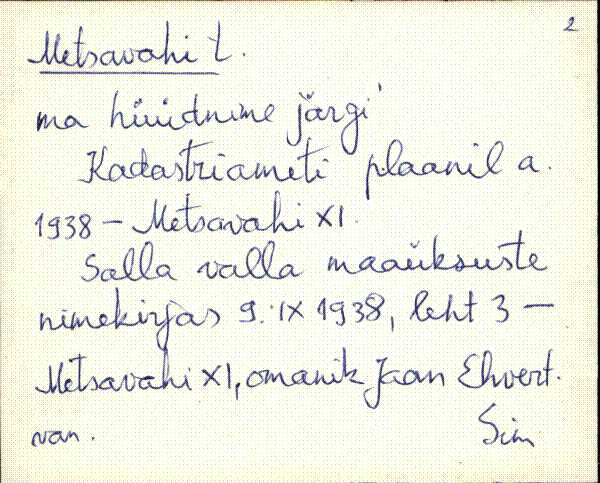 2
Metsavahi t.
ma hüüdnime järgi
Kadastriameti plaanil a.
1938 – Metsavahi XI.
Salla valla maaüksuste
nimekirjas 9. IX 1938, leht 3 –
Metsavahi XI, omanik Jaan Ehvert.
van. Sim